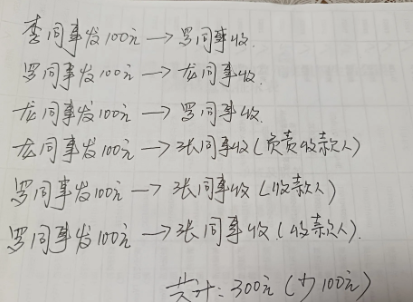 李同事发100元→罗同事收.
罗同事发100元→龙同事收.
龙同事发100元→罗同事收.
龙同事发100元→张同事收(负责收款人)
罗同事发100元→张同事收(收款人)
罗同事发100元→张同事收(收款人).
共计:300元(少100元)